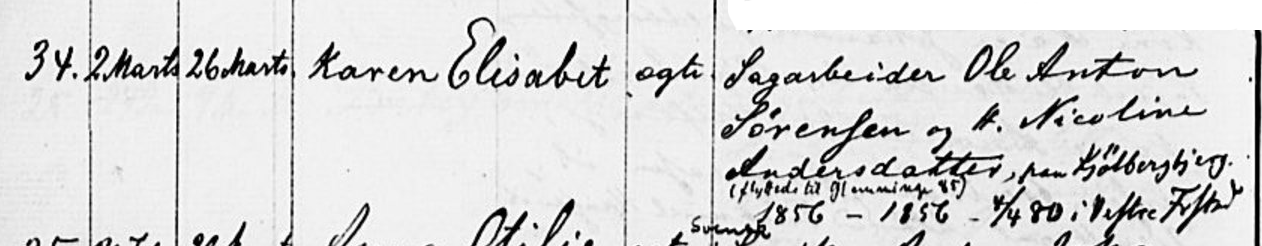 34. 2 Marts 26 Marts. Karen Elisabet ægte Sagarbeider Ole Anton
Sørensen og H. Nicoline
Andersdatter, paa Kjölbergbjerg.
(flyttede til Glemminge 85)
1856 – 1856 – 4/4 80 i Vestre Frstad
Svensk